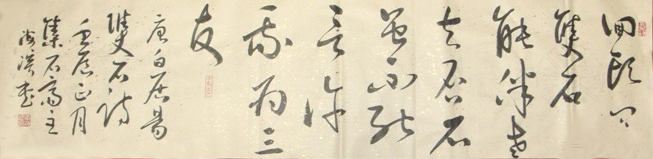 回頭问
雙石
能伴老
夫否石
雖不能
言許
我为三
友
唐白居易
雙石诗
壬辰正月
集石斋主